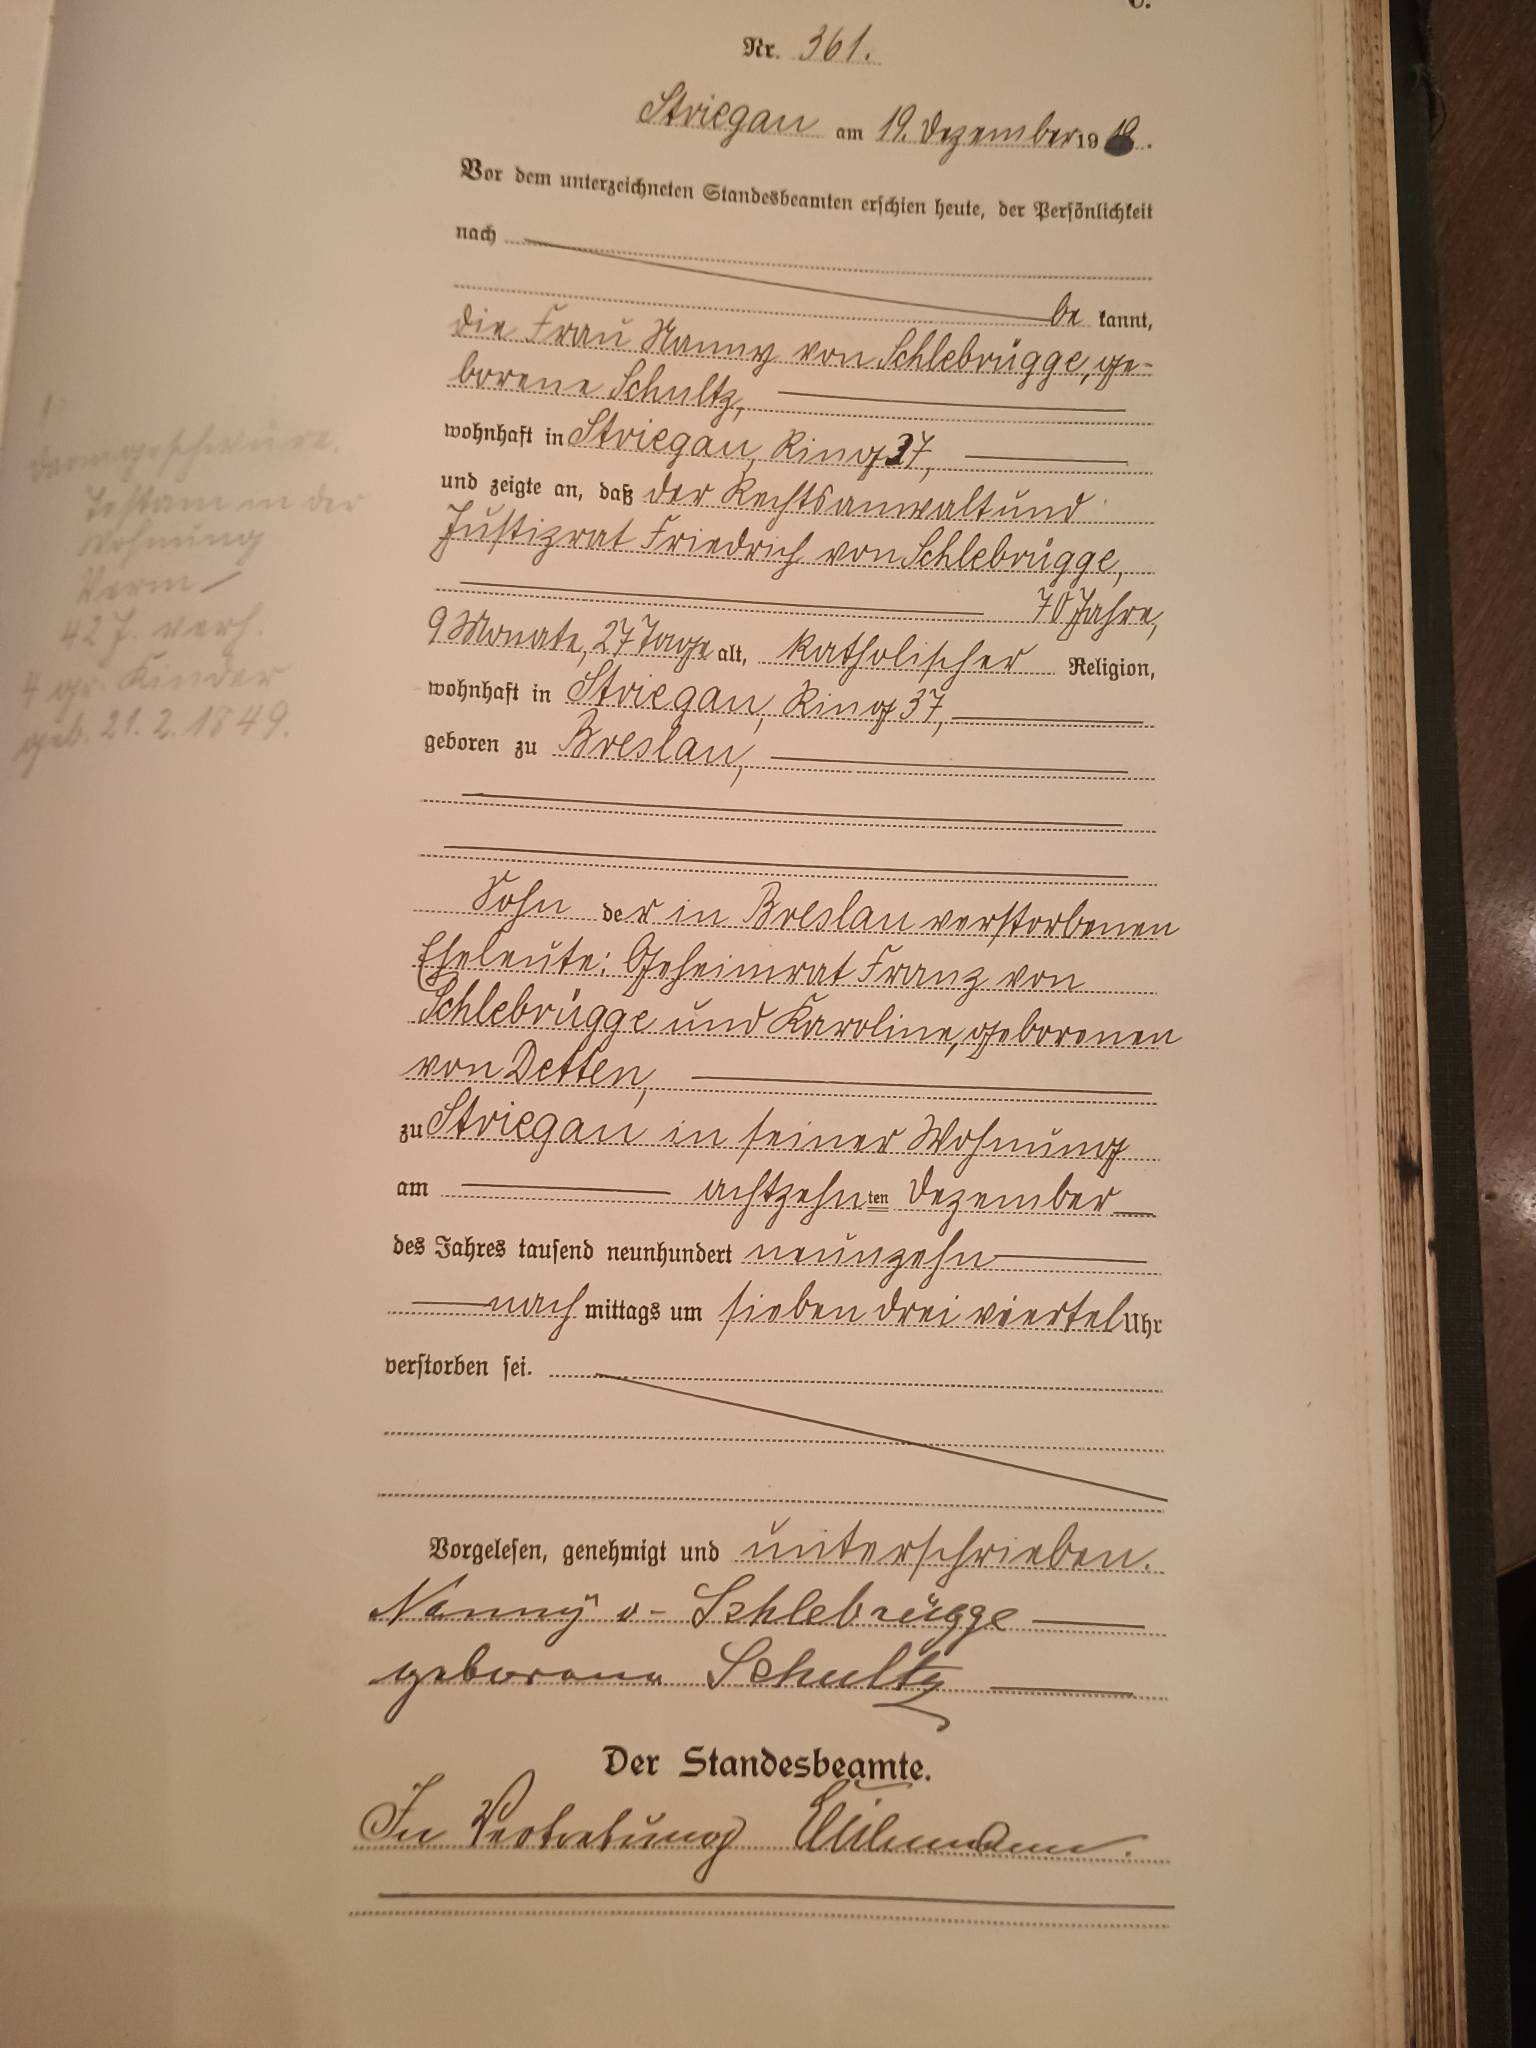 C.
Nr. 361.
Striegau am 19. Dezember 1919.
Vor dem unterzeichneten Standesbeamten erschien heute, der Persönlichkeit
nach
be kannt,
die Frau Nanny von Schlebrügge, ge-
borene Schultz,
wohnhaft in Striegau, Ring 37,
und zeigte an, daß der Rechtsanwalt und
Justizrat Friedrich von Schlebrügge,
70 Jahre,
9 Monate, 27 Tage alt, katholischer Religion,
wohnhaft in Striegau, Ring 37,
geboren zu Breslau,
Sohn der in Breslau verstorbenen
Eheleute: Geheimrat Franz von
Schlebrügge und Karoline, geborenen
von Detten,
zu Striegau in seiner Wohnung
am achtzehnten Dezember
des Jahres tausend neunhundert neunzehn
nachmittags um sieben drei viertel Uhr
verstorben sei.
Vorgelesen, genehmigt und unterschrieben.
Nanny v. Schlebrügge
geborene Schultz
Der Standesbeamte.
In Vertretung
Darmgeschwüre.
Testam in der
Wohnung
Verm
42 J. verh.
4 gr. Kinder
geb. 21.2.1849.